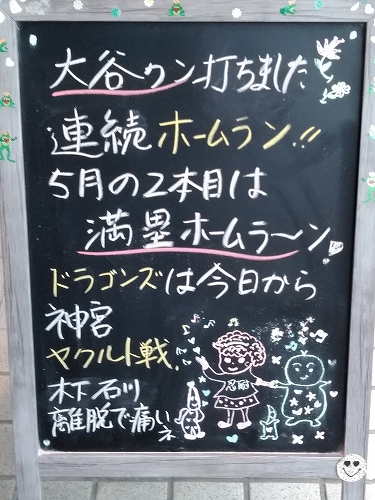 大谷クン打ちました
連続ホームラン!!
5月の2本目は
満塁ホームラ〜ン
ドラゴンズは今日から
神宮
ヤクルト戦.
木下石川
離脱で痛いネ